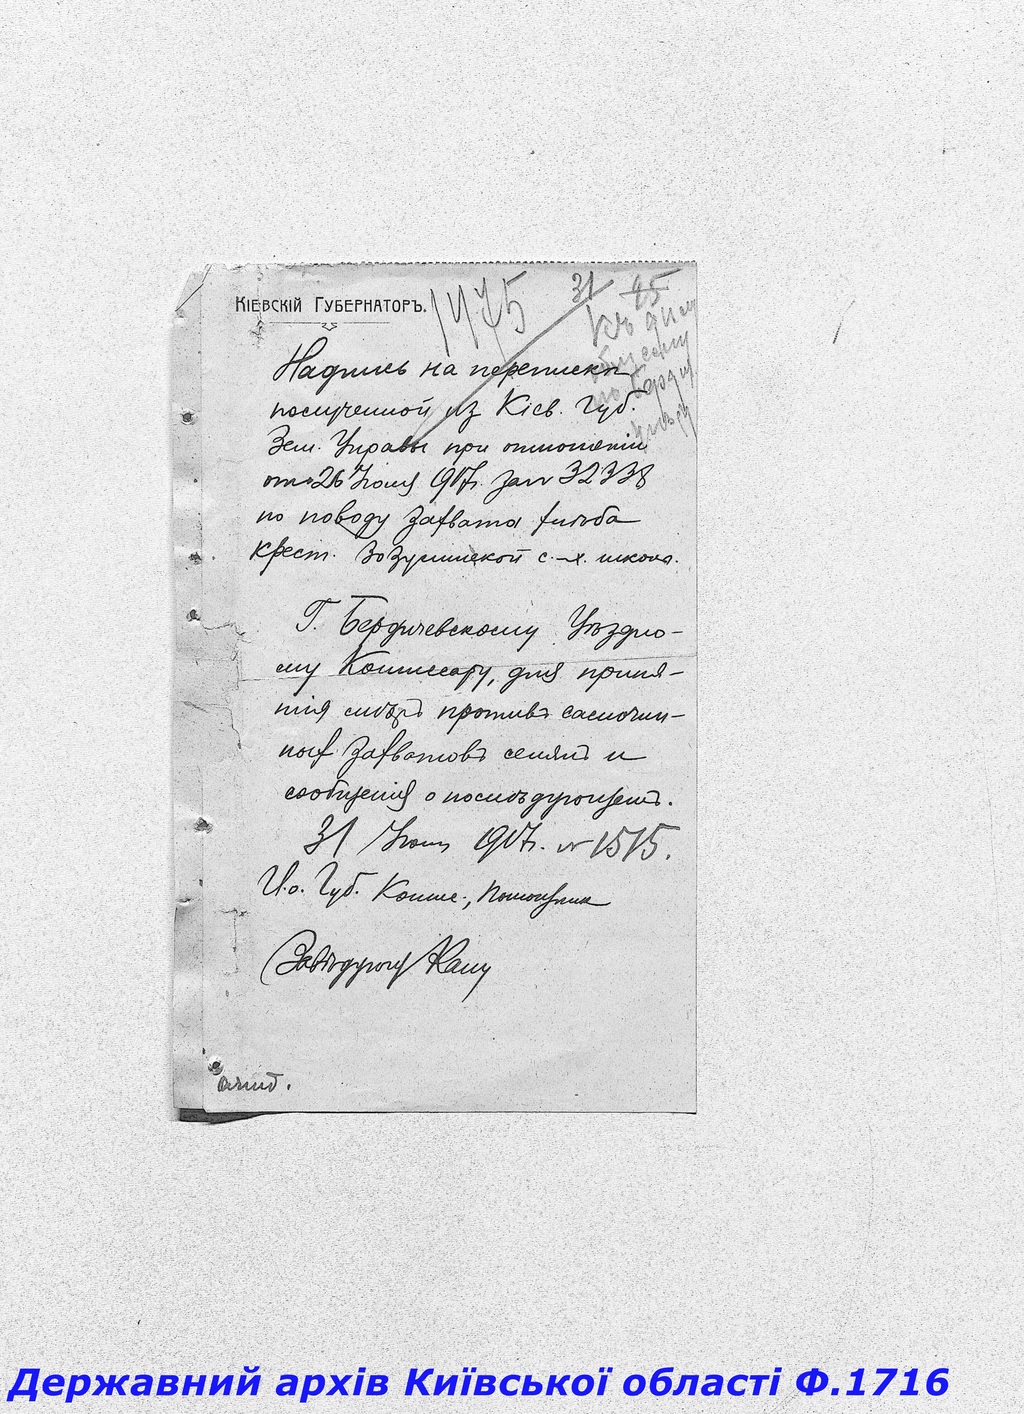 Кіевскій Губернаторъ.
1475
31 95
Къ дѣлу
Надпись на перепискѣ
полученной из Кіев. Губ.
Зем. Управы при отношеніи
отъ 26 Іюля 1917г. за № 32338
по поводу захвата
крест. с.-х. школы.
Г. Бердичевскому Уѣздно-
му Комиссару, для приня-
тія мѣръ противъ самочин-
ных захватовъ земли и
сообщенія о послѣдующемъ.
31 Іюля 1917г. № 1515.
И.о. Губ. Комис., Помощник
Завѣдующ Канц
Державний архів Київської області Ф.1716